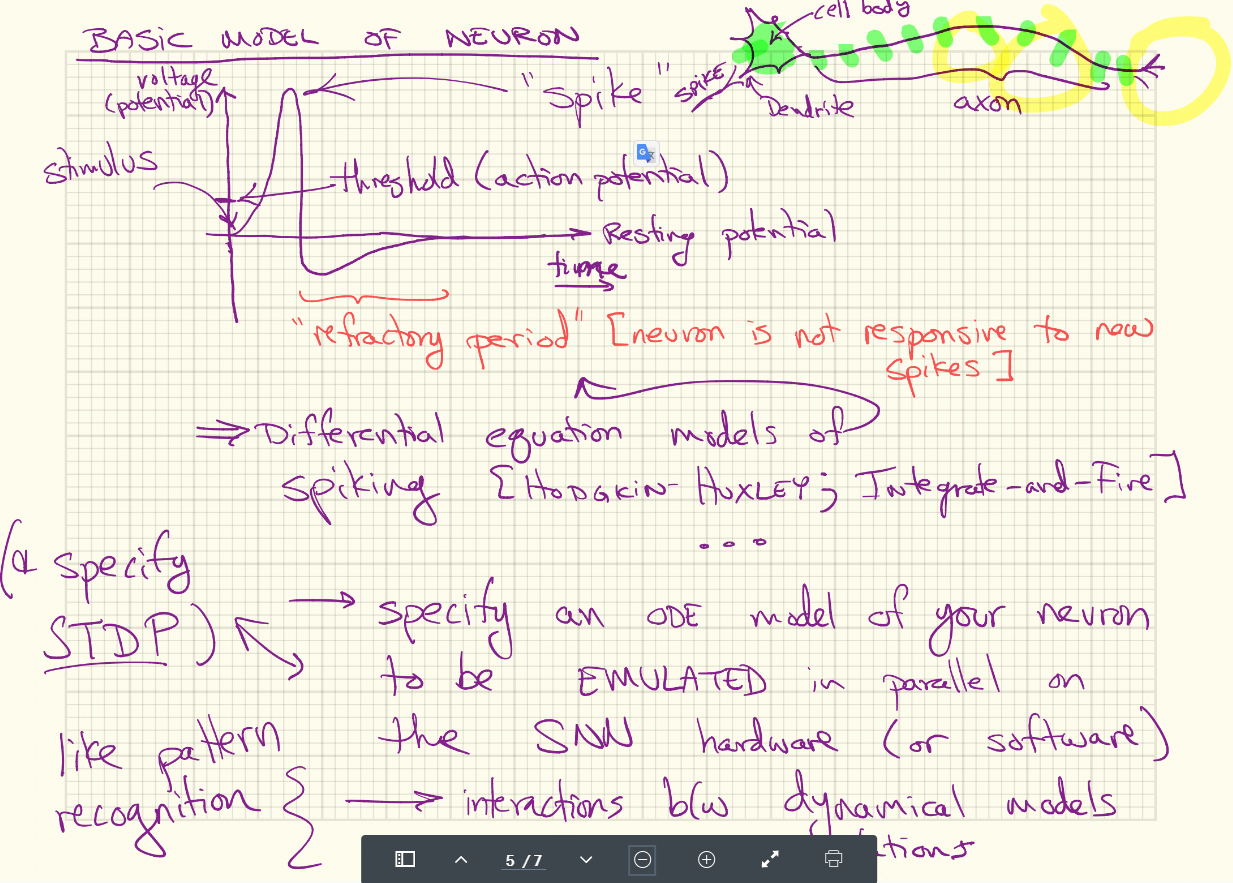 BASIC MODEL OF NEURON
cell body
voltage
(potential)
"spike"
spike
Dendrite
axon
stimulus
threshold (action potential)
Resting potential
time
"refractory period" [neuron is not responsive to new
spikes]
⇒ Differential equation models of
spiking [HODGKIN-HUXLEY; Integrate-and-Fire]
...
(& specify
STDP)
→ specify an ODE model of your neuron
to be EMULATED in parallel on
the SNN hardware (or software)
like pattern
recognition
→ interactions b/w dynamical models
5 / 7